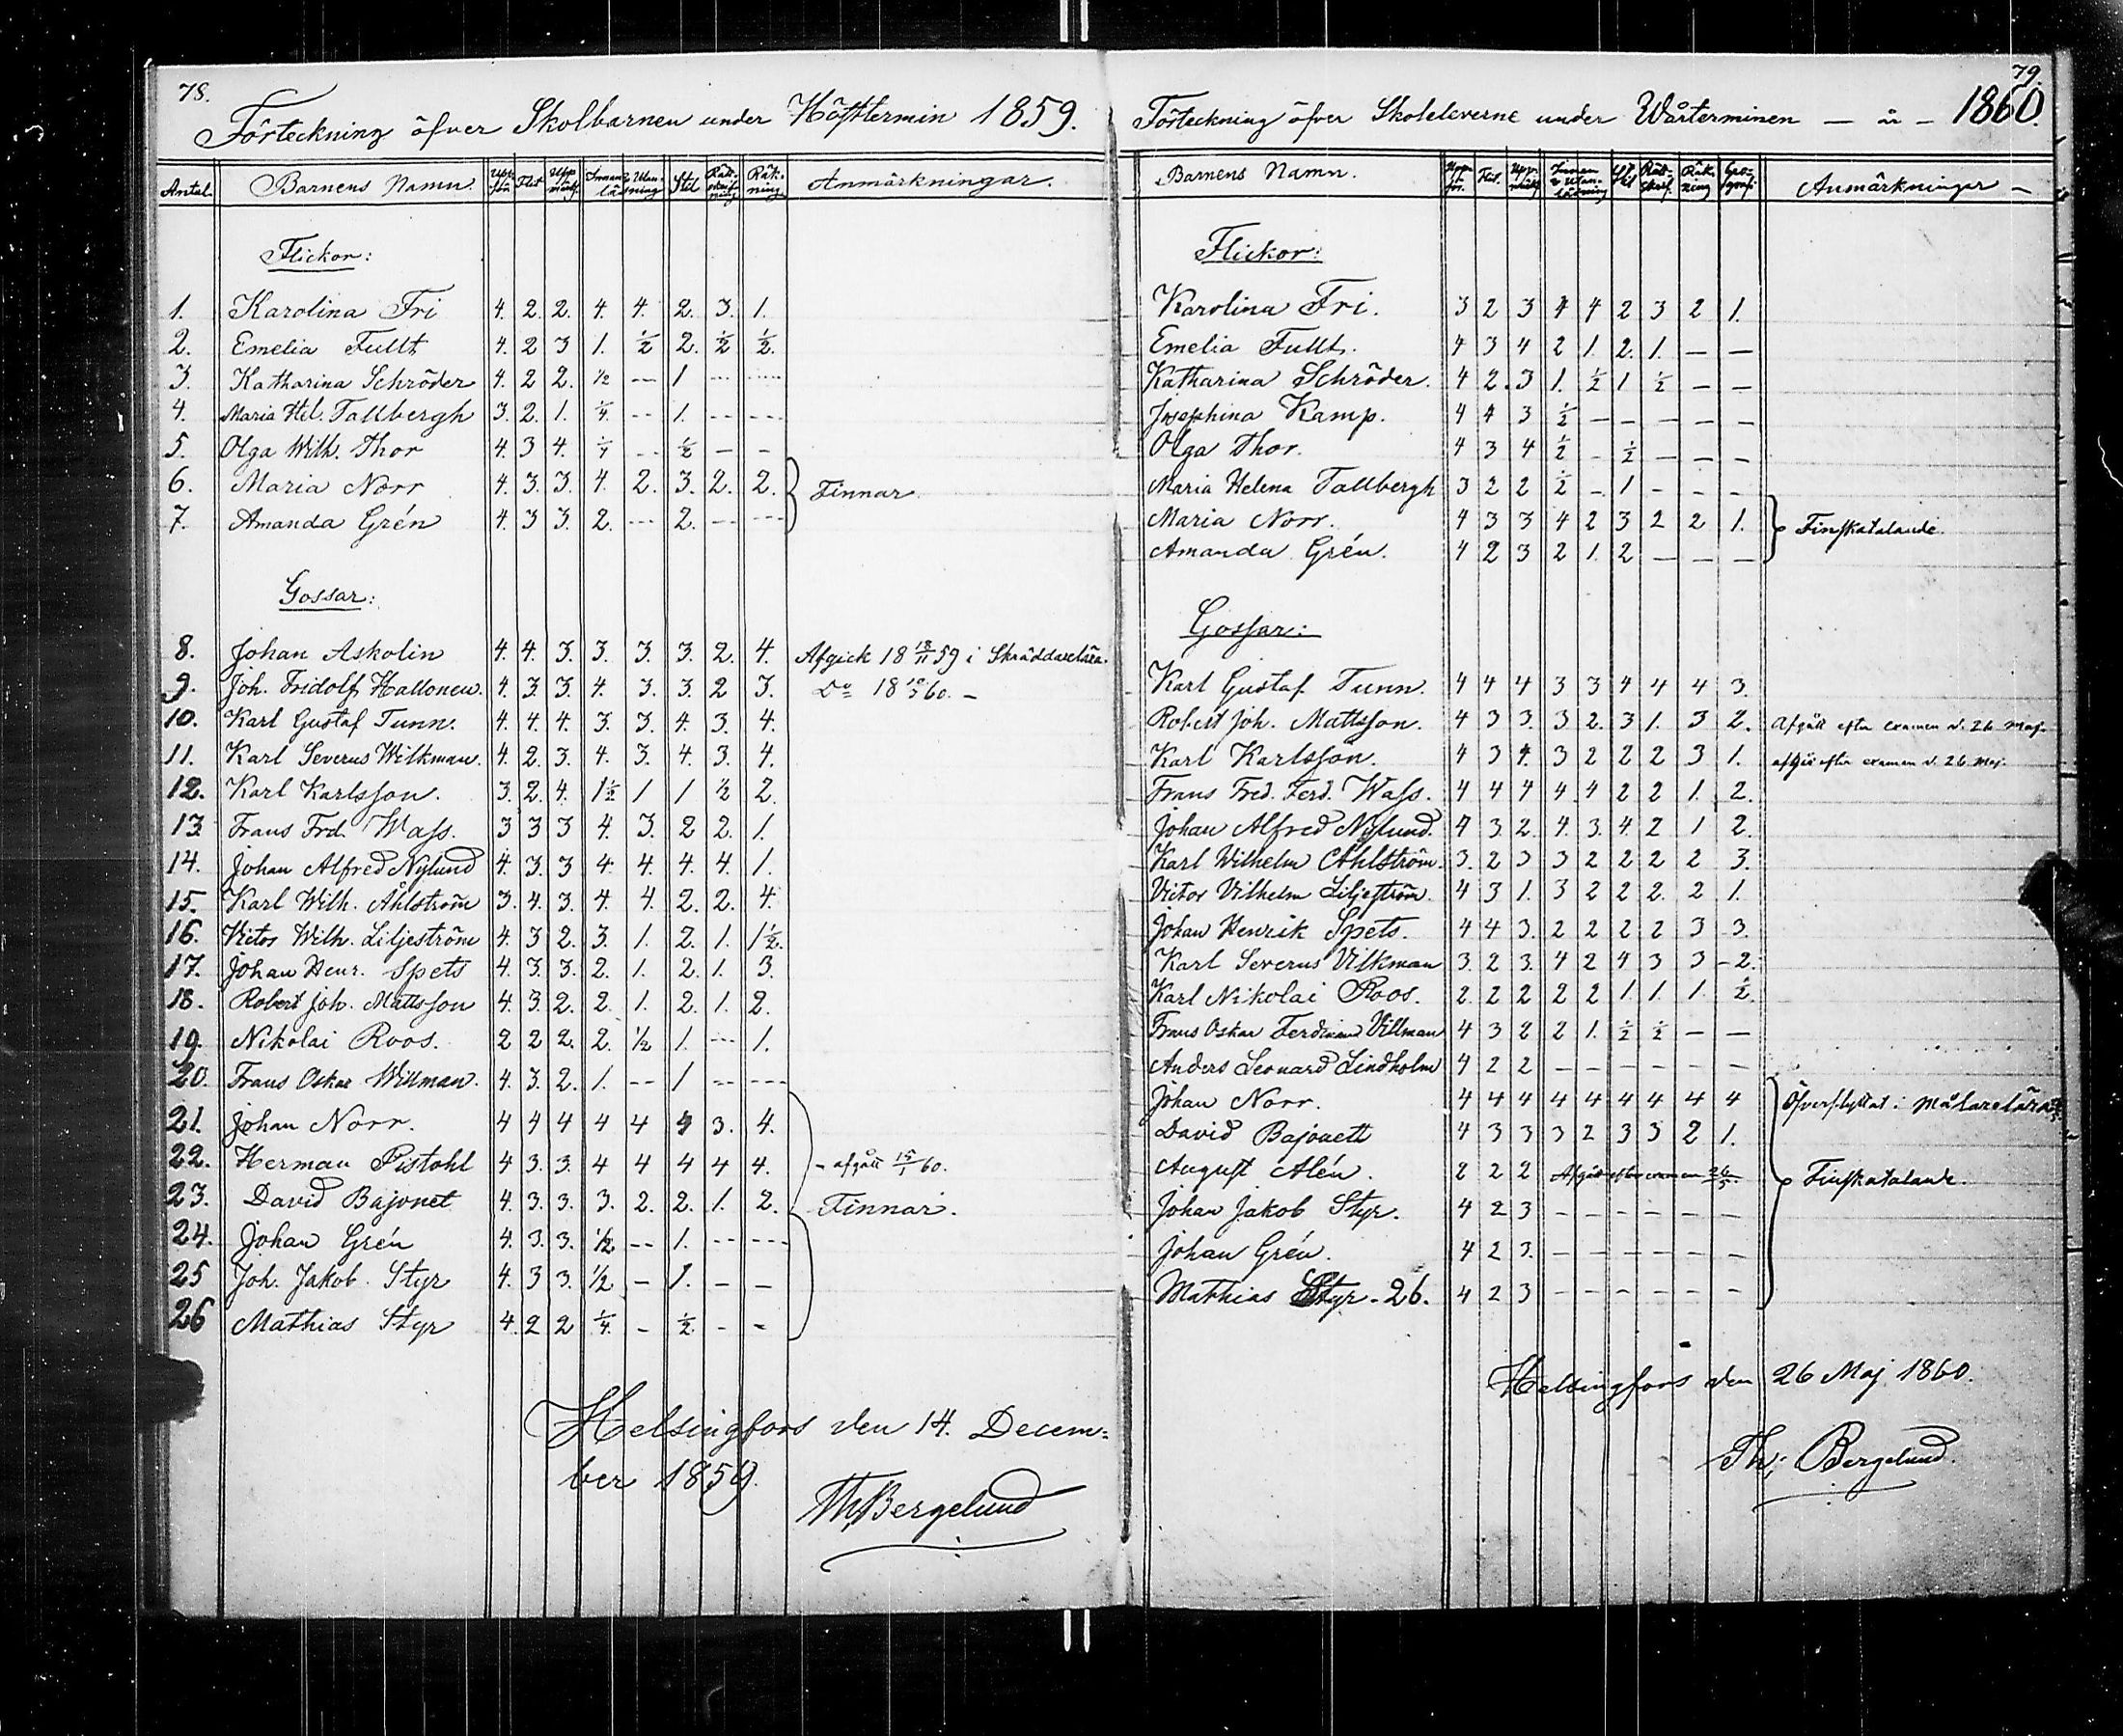 78.
Förteckning öfver Skolbarnen under Hösttermin 1859.
Antal. Barnens Namn. Upp-för. Flit Upp-märk. Innan- & Utan-läsning Stil Rätt-skrif-ning Räk-ning Anmärkningar.
Flickor:
1. Karolina Fri 4. 2. 2. 4. 4. 2. 3. 1.
2. Emelia Fullt 4. 2 3 1. ½ 2. ½ ½.
3. Katharina Schröder 4. 2 2. ½ --- 1 --- ---
4. Maria Hel. Tallbergh 3. 2. 1. ¼. -- 1. -- ---
5. Olga Wilh. Thor 4. 3 4. ¼ -- ½ — –
6. Maria Norr 4. 3. 3. 4. 2. 3. 2. 2. Finnar
7. Amanda Grén 4. 3 3. 2. --- 2. --- ---
Gossar:
8. Johan Askolin 4. 4. 3. 3. 3. 3. 2. 4. Afgick 18 18/11 59 i Skräddarelära.
9. Joh. Fridolf Hallonen. 4. 3. 3. 4. 3. 3. 2 3. Do 18 60. –
10. Karl Gustaf Tunn. 4. 4. 4. 3. 3. 4. 3. 4.
11. Karl Severus Wilkman. 4. 2. 3. 4. 3. 4. 3. 4.
12. Karl Karlsson. 3. 2. 4. 1½ 1 1 ½ 2.
13. Frans Frd. Wass. 3 3 3 4. 3. 2 2. 1.
14. Johan Alfred Nylund 4. 3. 3 4. 4. 4. 4. 1.
15. Karl Wilh. Åhlström 3. 4. 3. 4. 4. 2. 2. 4.
16. Victor Wilh. Liljeström 4. 3 2. 3. 1. 2. 1. 1½.
17. Johan Henr. Spets 4. 3. 3. 2. 1. 2. 1. 3.
18. Robert Joh. Mattsson 4. 3. 2. 2. 1. 2. 1. 2.
19. Nikolai Roos. 2 2 2. 2. ½ 1. --- 1.
20. Frans Oskar Willman. 4. 3. 2. 1. -- 1 -- ---
21. Johan Norr. 4 4 4 4 4 4 3. 4.
22. Herman Pistohl 4 3. 3. 4 4 4 4 4. – afgått 15/1 60.
23. David Bajonet 4. 3. 3. 3. 2. 2. 1. 2. Finnar.
24. Johan Grén 4. 3. 3. ½ -- 1. -- ---
25 Joh. Jakob. Styr 4. 3 3. ½ – 1. – –
26 Mathias Styr 4. 2 2 ¼. – ½ – –
Helsingfors den 14. Decem-
ber 1859.
Th. Bergelund
79.
Förteckning öfver Skoleleverne under Wårterminen — år – 1860.
Barnens Namn. Upp-för. Flit. Upp-märk. Innan & Utan-läsning Stil Rätt-skrif. Räk-ning Geo-grafi Anmärkningar –
Flickor:
Karolina Fri. 3 2 3 4 4 2 3 2 1.
Emelia Fullt. 4 3 4 2 1. 2. 1. — —
Katharina Schröder. 4 2. 3 1. ½ 1 ½ – –
Josephina Kamp. 4 4 3 ½ – – – – –
Olga Thor. 4 3 4 ½ – ½ – – –
Maria Helena Tallbergh 3 2 2 ½ – 1 – – –
Maria Norr. 4 3 3 4 2 3 2 2 1. Finskatalande
Amanda Grén. 4 2 3 2 1. 2 – – –
Gossar:
Karl Gustaf Tunn. 4 4 4 3 3 4 4 4 3.
Robert Joh. Mattsson. 4 3 3. 3 2. 3 1. 3 2. Afgått efter examen d. 26 Maj.
Karl Karlsson. 4 3 4. 3 2 2 2 3 1. afgår efter examen d. 26 Maj.
Frans Fred. Ferd. Wass. 4 4 4 4 4 2 2 1. 2.
Johan Alfred Nylund. 4 3. 2. 4. 3. 4. 2 1 2.
Karl Wilhelm Åhlström. 3. 2 3 3 2 2 2 2 3.
Victor Vilhelm Liljeström. 4 3 1. 3 2 2 2. 2 1.
Johan Henrik Spets. 4 4 3. 2 2 2 2 3 3.
Karl Severus Vilkman 3. 2 3. 4 2 4 3 3 – 2.
Karl Nikolai Roos. 2. 2 2 2 2 1. 1. 1. ½.
Frans Oskar Ferdinand Villman 4 3 2 2 1. ½ ½ – —
Anders Leonard Lindholm 4 2 2 – – – – – –
Johan Norr. 4 4 4 4 4 4 4 4 4 Öfverflyttat i Målarelära
David Bajonett 4 3 3 3 2 3 3 2 1.
August Alén. 2 2 2 Afgått efter examen 26/5. Finskatalande.
Johan Jakob Styr. 4 2 3 – – – – – –
Johan Grén. 4 2 3. – – – – – –
Mathias Styr – 26. 4 2 3 – – – – – –
Helsingfors den 26 Maj 1860.
Th. Bergelund.